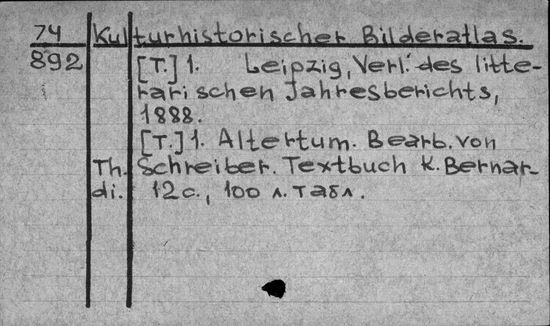 74 Kulturhistorischer Bilderatlas.
892 [T.] 1. Leipzig, Verl. des litte-
rarischen Jahresberichts,
1888.
[T.] 1. Altertum. Bearb. von
Th. Schreiber. Textbuch K. Bernar-
di. 12 с., 100 л. табл.